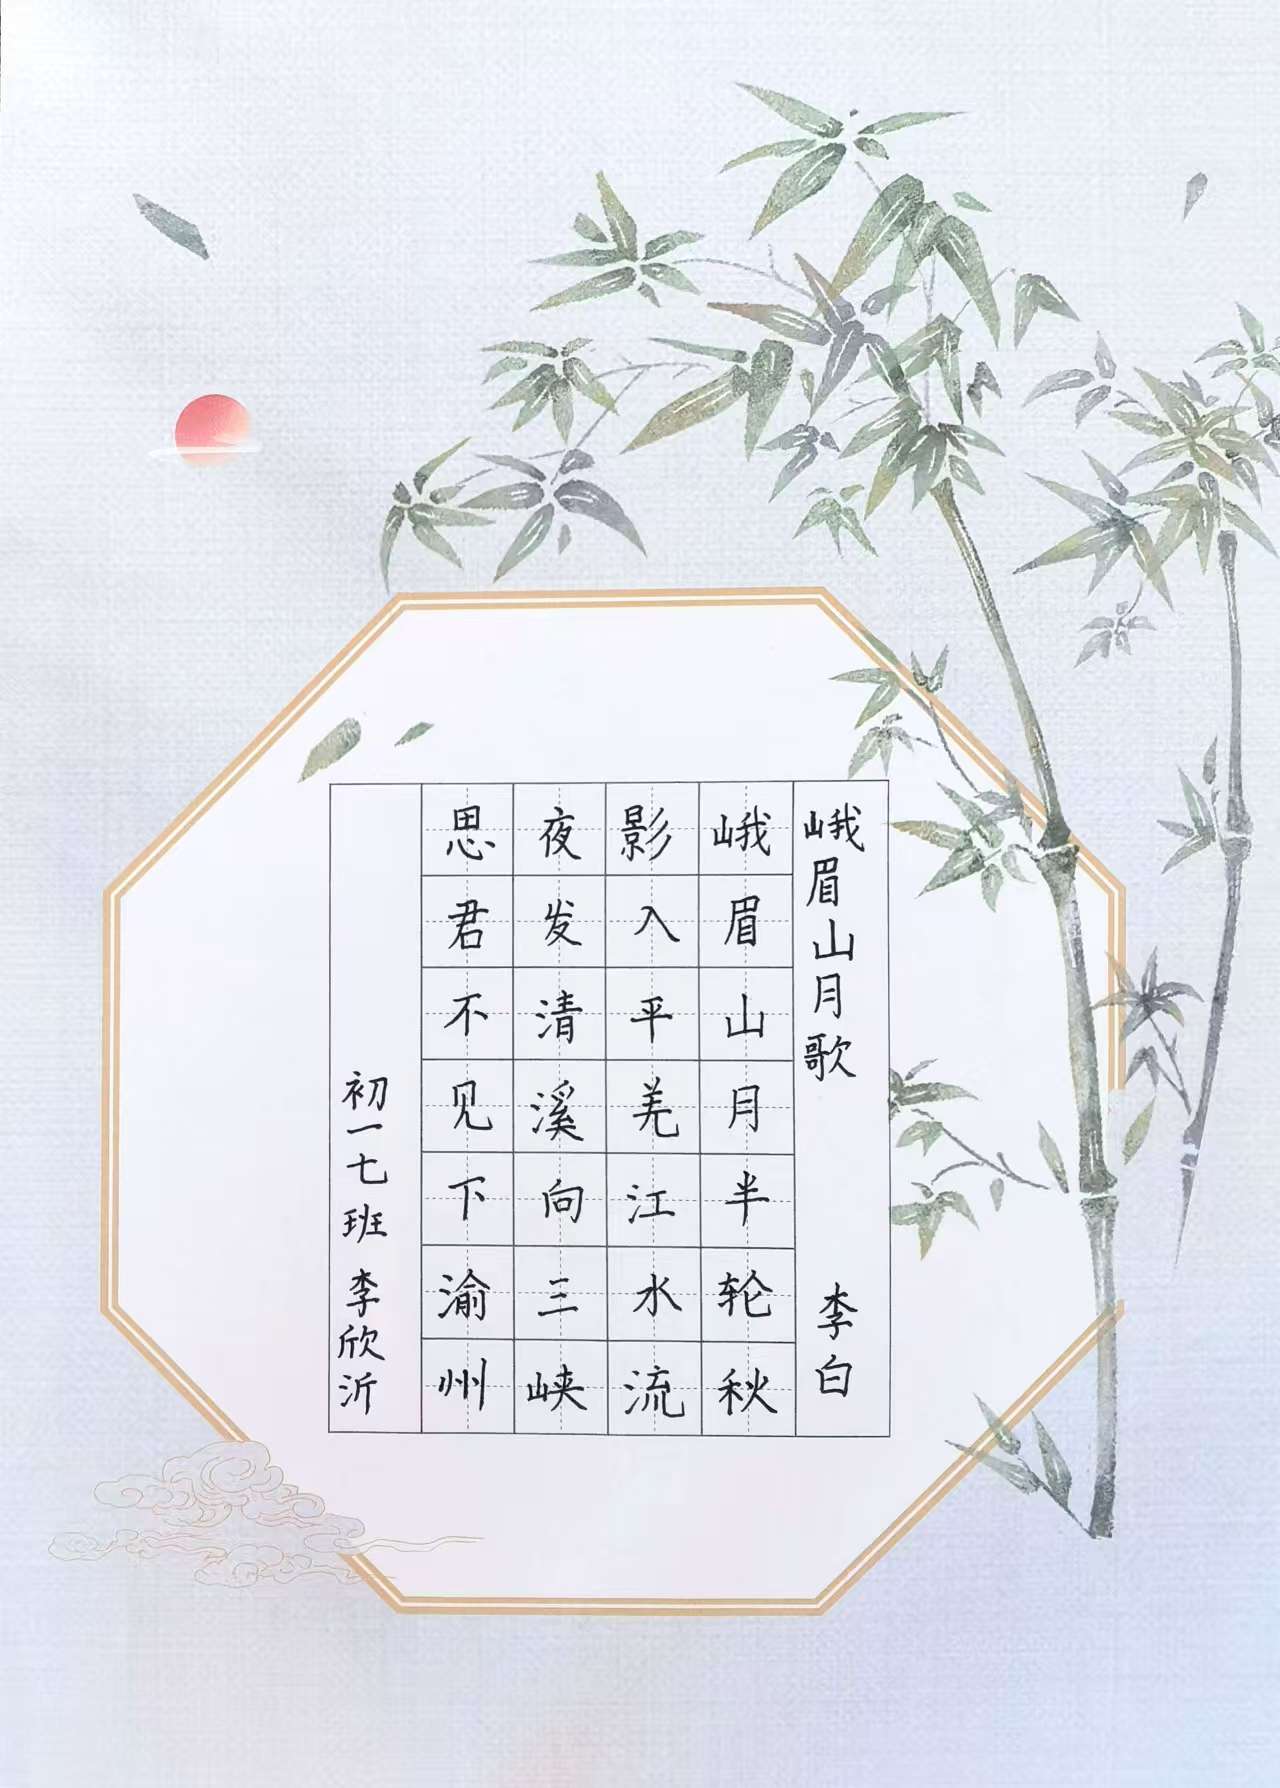 峨眉山月歌 李白
峨眉山月半轮秋
影入平羌江水流
夜发清溪向三峡
思君不见下渝州
初一七班 李欣沂